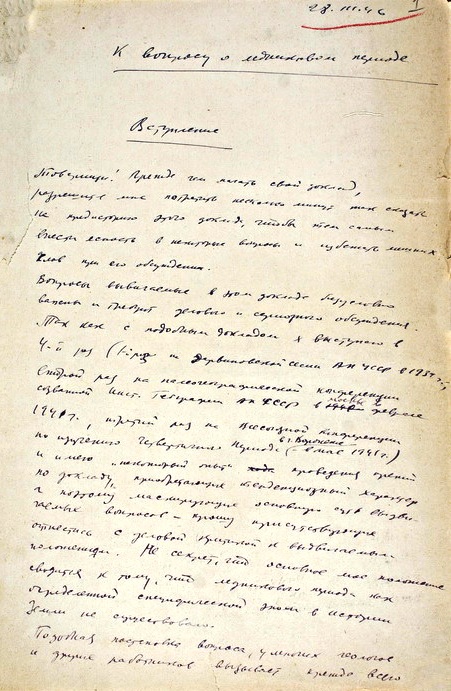 28.III.46
1
К вопросу о ледниковом периоде
Вступление
Товарищи! Прежде чем начать свой доклад,
разрешите мне потратить несколько минут так сказать
на предисторию этого доклада, чтобы тем самым
внести ясность в некоторые вопросы и избежать лишних
слов при его обсуждении.
Вопросы выдвигаемые в этом докладе безусловно
важны и требуют делового и обсуждения.
Так как с подобным докладом я выступаю в
4-й раз ( на Дарвиновской сессии АН УССР в
второй раз на палеогеографической конференции
созванной Инст. Географии АН СССР в Москве в феврале
1941г, третий раз на конференции
по изучению четвертичного периода в г. Воронеже в мае 1941г.)
и имею некоторый опыт проведения прений
по докладу, тенденциозный характер
и поэтому основную суть выдви-
гаемых вопросов – прошу присутствующих
отнестись с деловой критикой к выдвигаемым
положениям. Не секрет, что основное мое положение
сводится к тому, что ледникового периода как
определенной специфической эпохи в истории
Земли не существовало.
Подобная постановка вопроса, у многих геологов
и других работников вызывает прежде всего